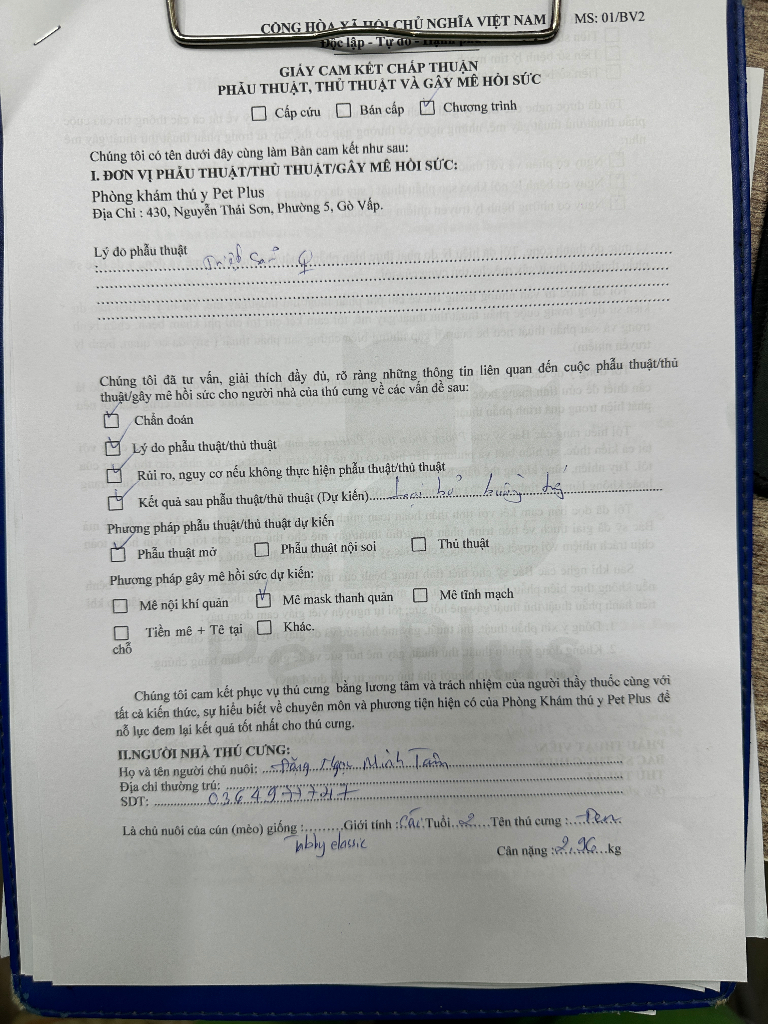 CỘNG HÒA XÃ HỘI CHỦ NGHĨA VIỆT NAM MS: 01/BV2
Độc lập - Tự do -
GIẤY CAM KẾT CHẤP THUẬN
PHẪU THUẬT, THỦ THUẬT VÀ GÂY MÊ HỒI SỨC
☐ Cấp cứu ☐ Bán cấp ☑ Chương trình
Chúng tôi có tên dưới đây cùng làm Bản cam kết như sau:
I. ĐƠN VỊ PHẪU THUẬT/THỦ THUẬT/GÂY MÊ HỒI SỨC:
Phòng khám thú y Pet Plus
Địa Chỉ : 430, Nguyễn Thái Sơn, Phường 5, Gò Vấp.
Lý do phẫu thuật
: Triệt sản ♀
Chúng tôi đã tư vấn, giải thích đầy đủ, rõ ràng những thông tin liên quan đến cuộc phẫu thuật/thủ
thuật/gây mê hồi sức cho người nhà của thú cưng về các vấn đề sau:
☑ Chẩn đoán
☑ Lý do phẫu thuật/thủ thuật
☑ Rủi ro, nguy cơ nếu không thực hiện phẫu thuật/thủ thuật
☑ Kết quả sau phẫu thuật/thủ thuật (Dự kiến)... Loại bỏ buồng trứng
Phương pháp phẫu thuật/thủ thuật dự kiến
☑ Phẫu thuật mở ☐ Phẫu thuật nội soi ☐ Thủ thuật
Phương pháp gây mê hồi sức dự kiến:
☐ Mê nội khí quản ☑ Mê mask thanh quản ☐ Mê tĩnh mạch
☐ Tiền mê + Tê tại ☐ Khác.
chỗ
Pet Plus
Chúng tôi cam kết phục vụ thú cưng bằng lương tâm và trách nhiệm của người thầy thuốc cùng với
tất cả kiến thức, sự hiểu biết về chuyên môn và phương tiện hiện có của Phòng Khám thú y Pet Plus để
nỗ lực đem lại kết quả tốt nhất cho thú cưng.
II.NGƯỜI NHÀ THÚ CƯNG:
Họ và tên người chủ nuôi: Đặng Ngọc Minh Tâm
Địa chỉ thường trú:
SDT:
Là chủ nuôi của cún (mèo) giống :.........Giới tính : Cái Tuổi..2....Tên thú cưng : Đen
Cân nặng : 2.96 kg